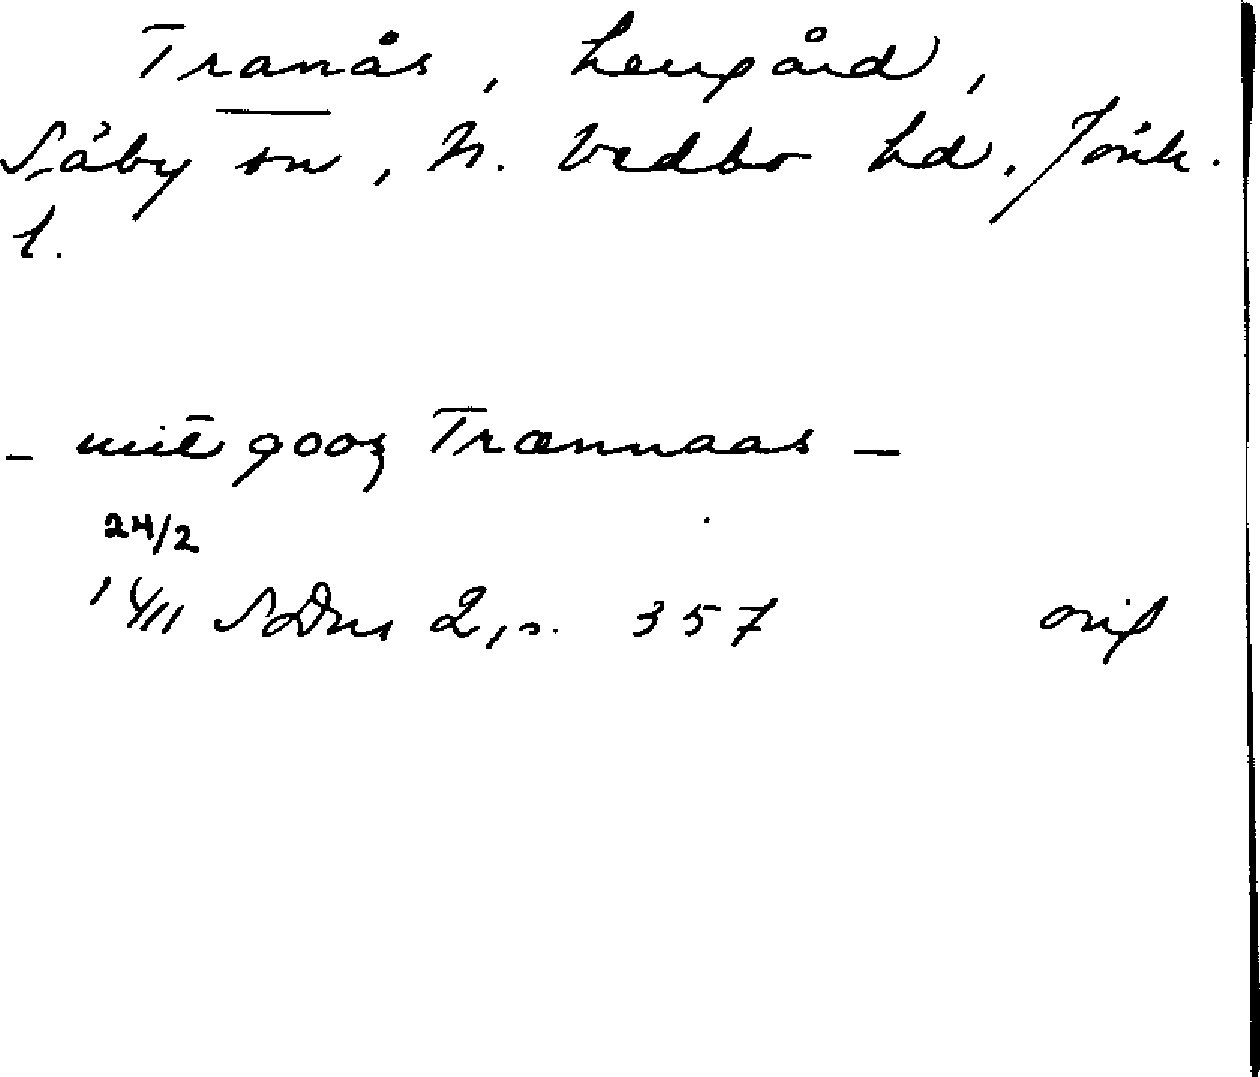 Tranås, herrgård,
Säby sn, N. Vedbo hd, Jönk.
l.
- mit gooz Trænnaas -
24/2
1411 SDns 2, s. 357 orig